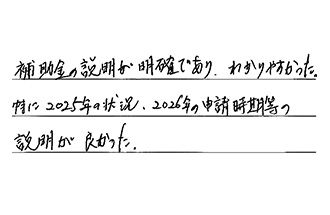 補助金の説明が明確であり、わかりやすかった。
特に2025年の状況、2026年の申請時期等の
説明が良かった。